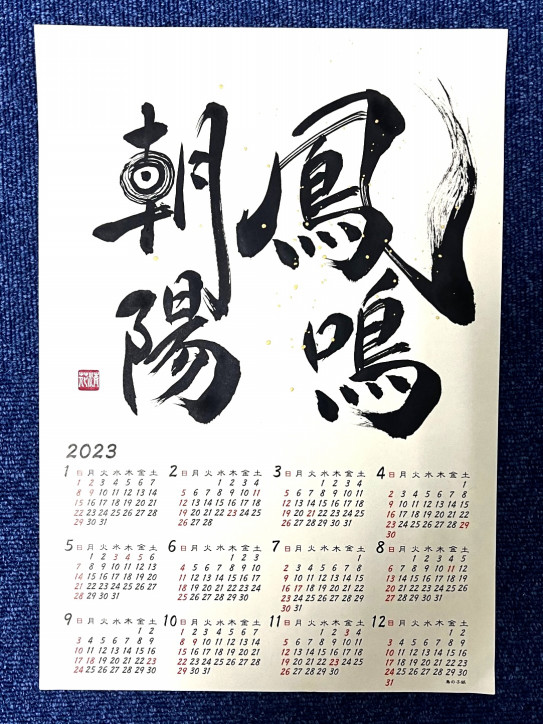 鳳鳴
朝陽
2023
1 日 月 火 水 木 金 土
1 2 3 4 5 6 7
8 9 10 11 12 13 14
15 16 17 18 19 20 21
22 23 24 25 26 27 28
29 30 31
2 日 月 火 水 木 金 土
1 2 3 4
5 6 7 8 9 10 11
12 13 14 15 16 17 18
19 20 21 22 23 24 25
26 27 28
3 日 月 火 水 木 金 土
1 2 3 4
5 6 7 8 9 10 11
12 13 14 15 16 17 18
19 20 21 22 23 24 25
26 27 28 29 30 31
4 日 月 火 水 木 金 土
1
2 3 4 5 6 7 8
9 10 11 12 13 14 15
16 17 18 19 20 21 22
23 24 25 26 27 28 29
30
5 日 月 火 水 木 金 土
1 2 3 4 5 6
7 8 9 10 11 12 13
14 15 16 17 18 19 20
21 22 23 24 25 26 27
28 29 30 31
6 日 月 火 水 木 金 土
1 2 3
4 5 6 7 8 9 10
11 12 13 14 15 16 17
18 19 20 21 22 23 24
25 26 27 28 29 30
7 日 月 火 水 木 金 土
1
2 3 4 5 6 7 8
9 10 11 12 13 14 15
16 17 18 19 20 21 22
23 24 25 26 27 28 29
30 31
8 日 月 火 水 木 金 土
1 2 3 4 5
6 7 8 9 10 11 12
13 14 15 16 17 18 19
20 21 22 23 24 25 26
27 28 29 30 31
9 日 月 火 水 木 金 土
1 2
3 4 5 6 7 8 9
10 11 12 13 14 15 16
17 18 19 20 21 22 23
24 25 26 27 28 29 30
10 日 月 火 水 木 金 土
1 2 3 4 5 6 7
8 9 10 11 12 13 14
15 16 17 18 19 20 21
22 23 24 25 26 27 28
29 30 31
11 日 月 火 水 木 金 土
1 2 3 4
5 6 7 8 9 10 11
12 13 14 15 16 17 18
19 20 21 22 23 24 25
26 27 28 29 30
12 日 月 火 水 木 金 土
1 2
3 4 5 6 7 8 9
10 11 12 13 14 15 16
17 18 19 20 21 22 23
24 25 26 27 28 29 30
31